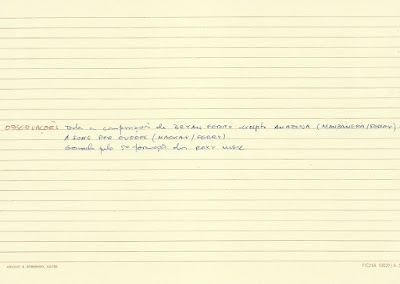 OBSERVAÇÕES Todas as composições de BRYAN FERRY excepto AMAZONA (MANZANERA/FERRY)
A SONG FOR EUROPE (MACKAY/FERRY)
Gravado pela 5ª formação dos ROXY MUSIC
FICHA